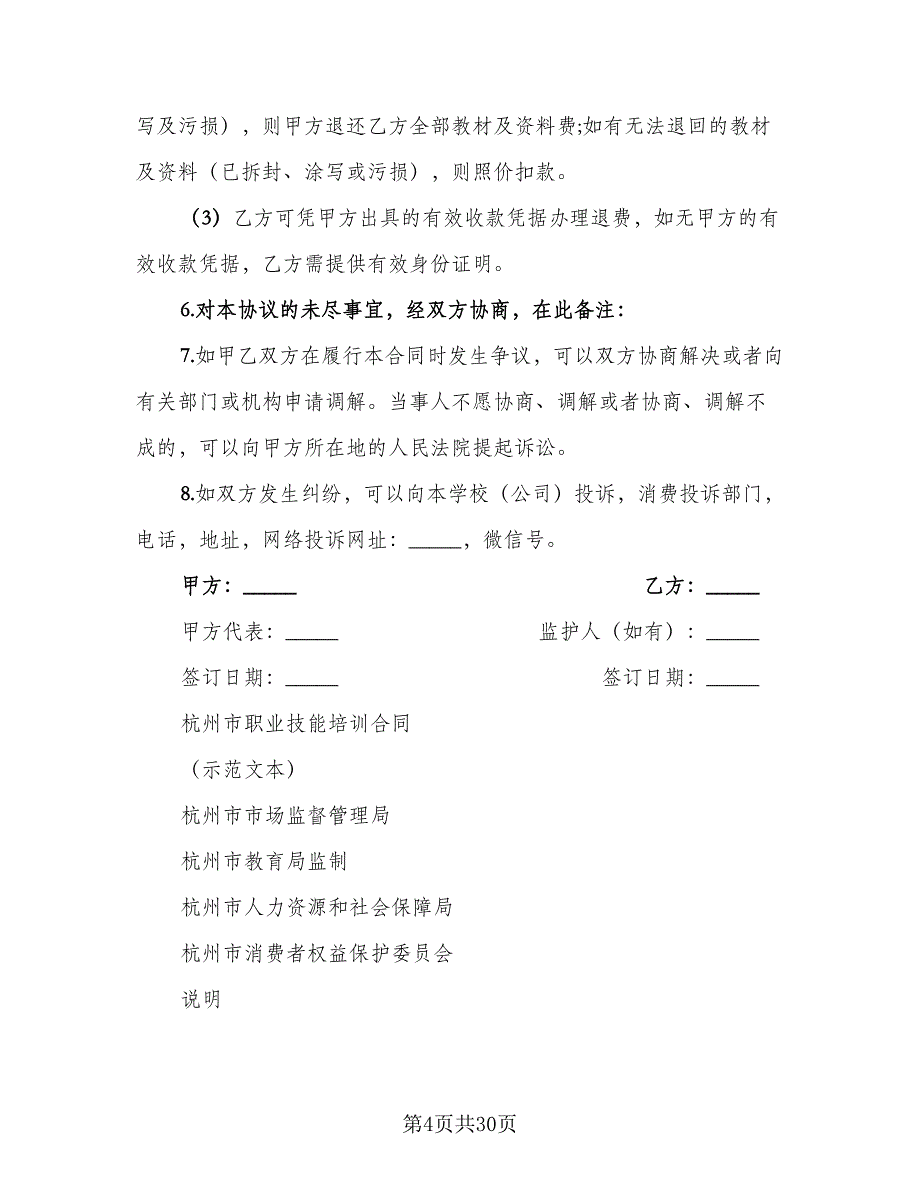 写及污损），则甲方退还乙方全部教材及资料费;如有无法退回的教材
及资料（已拆封、涂写或污损），则照价扣款。
（3）乙方可凭甲方出具的有效收款凭据办理退费，如无甲方的有
效收款凭据，乙方需提供有效身份证明。
6.对本协议的未尽事宜，经双方协商，在此备注：
7.如甲乙双方在履行本合同时发生争议，可以双方协商解决或者向
有关部门或机构申请调解。当事人不愿协商、调解或者协商、调解不
成的，可以向甲方所在地的人民法院提起诉讼。
8.如双方发生纠纷，可以向本学校（公司）投诉，消费投诉部门，
电话，地址，网络投诉网址：_____，微信号。
甲方：_____ 乙方：_____
甲方代表：_____ 监护人（如有）：_____
签订日期：_____ 签订日期：_____
杭州市职业技能培训合同
（示范文本）
杭州市市场监督管理局
杭州市教育局监制
杭州市人力资源和社会保障局
杭州市消费者权益保护委员会
说明
第4页共30页